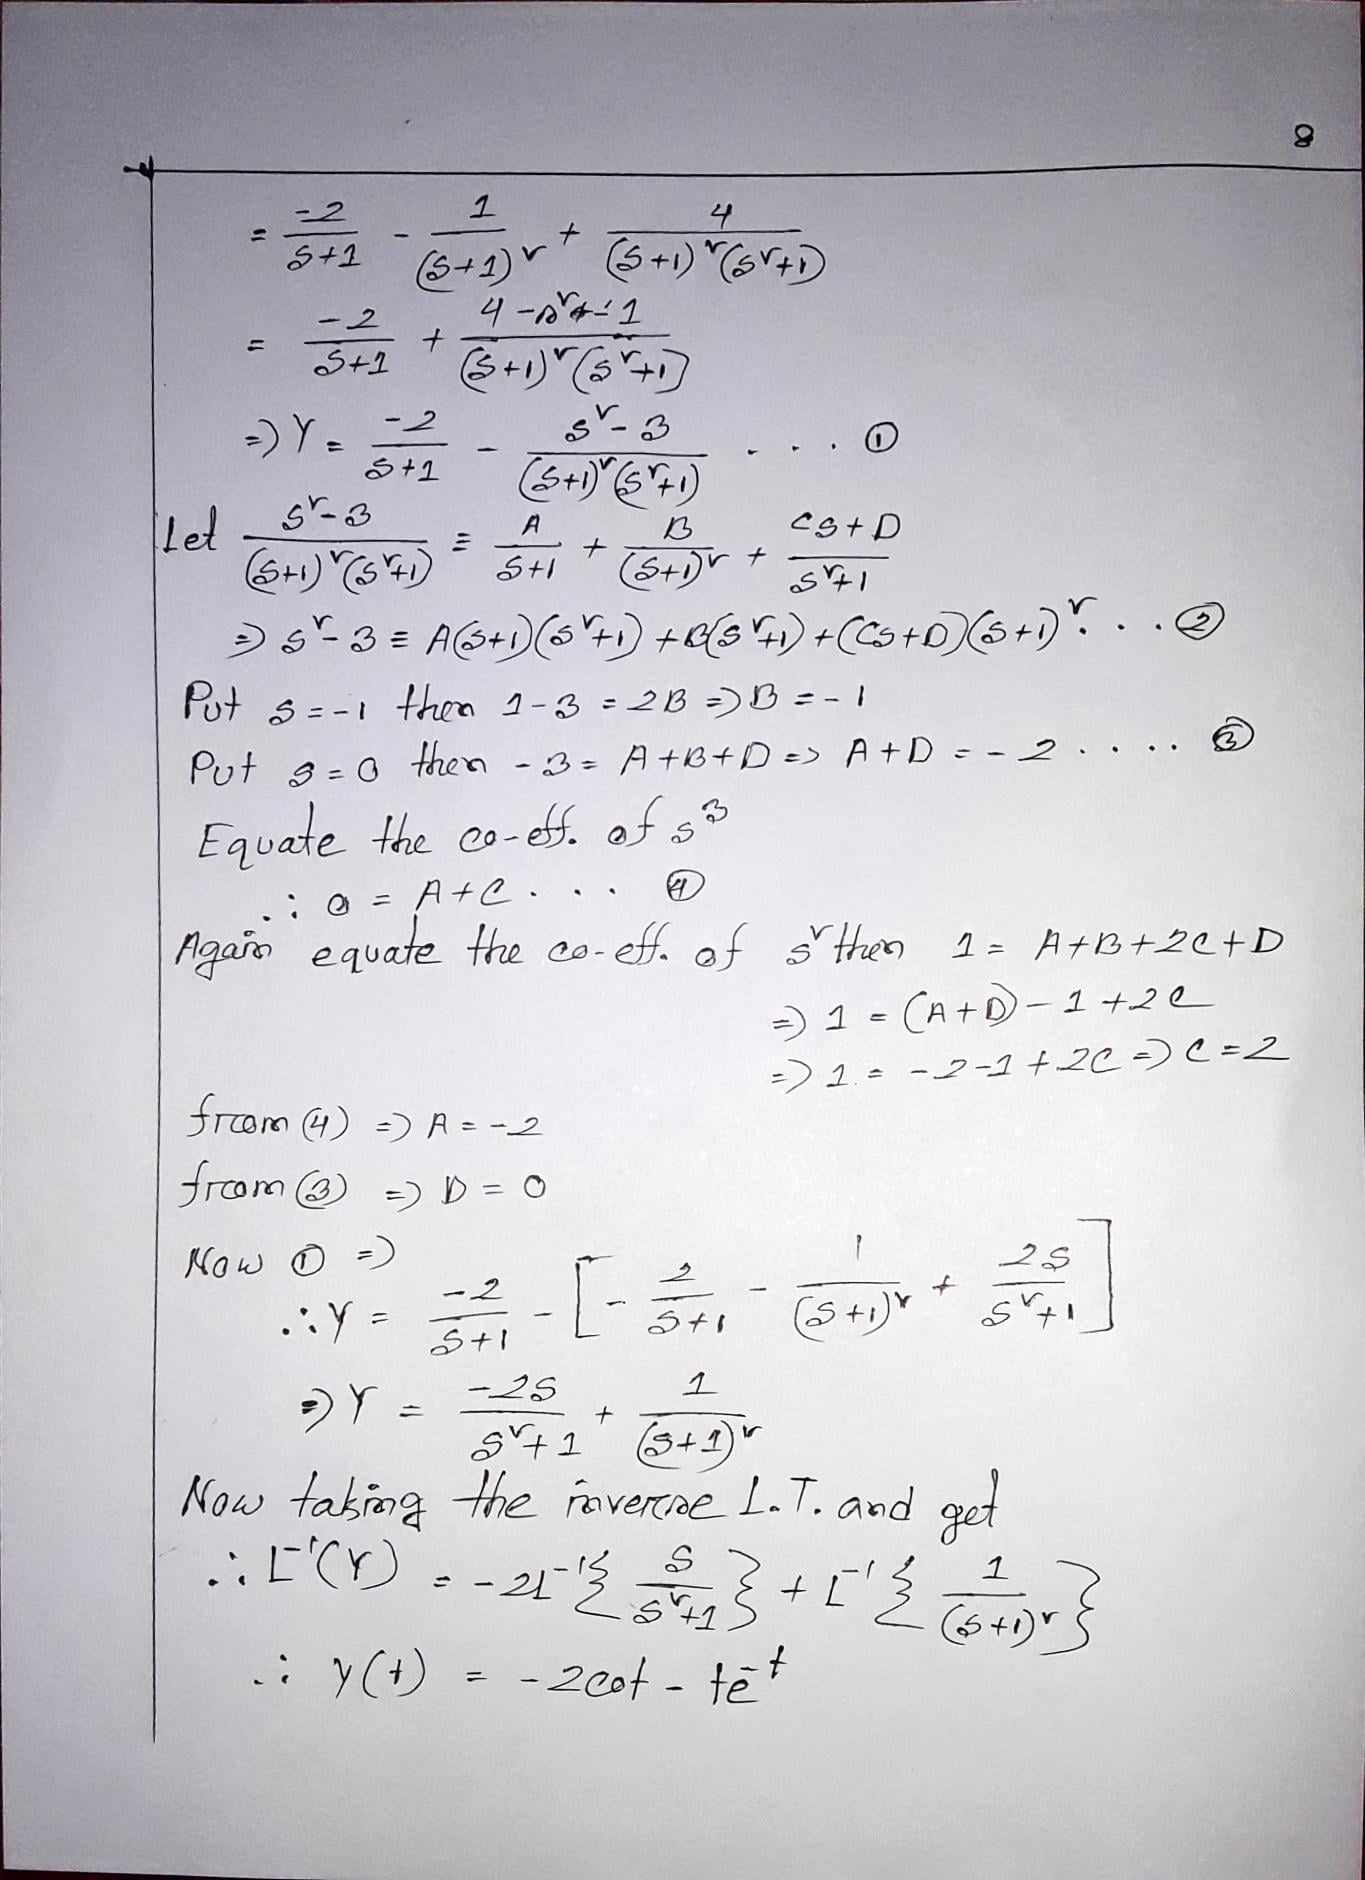 8
= -2/(S+1) - 1/(S+1)^r + 4/((S+1)^r(S^r+1))
= -2/(S+1) + (4-s^r-1)/((S+1)^r(S^r+1))
=> Y = -2/(S+1) - (S^r-3)/((S+1)^r(S^r+1)) .... ①
Let (S^r-3)/((S+1)^r(S^r+1)) ≡ A/(S+1) + B/(S+1)^r + (CS+D)/(S^r+1)
=> S^r-3 ≡ A(S+1)(S^r+1) + B(S^r+1) + (CS+D)(S+1)^r ... ②
Put S=-1 then 1-3 = 2B => B = -1
Put S=0 then -3 = A+B+D => A+D = -2 ..... ③
Equate the co-eff. of S^3
∴ 0 = A+C ... ④
Again equate the co-eff. of S^r then 1 = A+B+2C+D
=> 1 = (A+D)-1+2C
=> 1 = -2-1+2C => C=2
from (4) => A = -2
from (3) => D = 0
Now ① =>
∴ Y = -2/(S+1) - [-2/(S+1) - 1/(S+1)^r + 2S/(S^r+1)]
=> Y = -2S/(S^r+1) + 1/(S+1)^r
Now taking the inverse L.T. and get
∴ L^-1(Y) = -2L^-1{S/(S^r+1)} + L^-1{1/(S+1)^r}
∴ y(t) = -2cot - te^-t